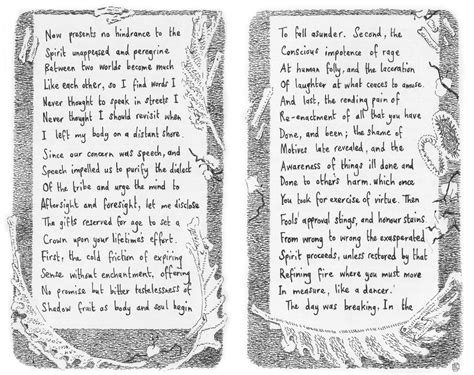 Now presents no hindrance to the
Spirit unappeased and peregrine
Between two worlds become much
Like each other, so I find words I
Never thought to speak in streets I
Never thought I should revisit when
I left my body on a distant shore.
Since our concern was speech, and
Speech impelled us to purify the dialect
Of the tribe and urge the mind to
Aftersight and foresight, let me disclose
The gifts reserved for age to set a
Crown upon your lifetime's effort.
First, the cold friction of expiring
Sense without enchantment, offering
No promise but bitter tastelessness of
Shadow fruit as body and soul begin
To fall asunder. Second, the
Conscious impotence of rage
At human folly, and the laceration
Of laughter at what ceases to amuse.
And last, the rending pain of
Re-enactment of all that you have
Done, and been; the shame of
Motives late revealed, and the
Awareness of things ill done and
Done to other's harm. Which once
You took for exercise of virtue. Then
Fools' approval stings, and honour stains.
From wrong to wrong the exasperated
Spirit proceeds, unless restored by that
Refining fire where you must move
In measure, like a dancer.'
The day was breaking. In the